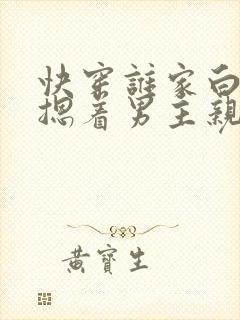 快穿誰家白
摁着男主親
黃寶生